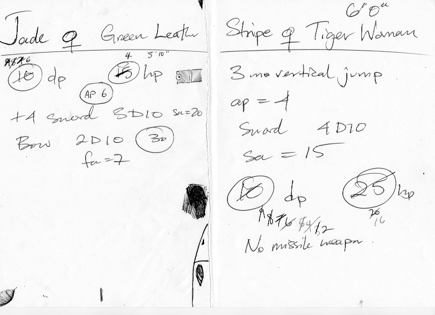 Jade ♀ Green Leather
4 5'10"
10 dp 15 hp
AP 6
+4 sword 3D10 sa=20
Bow 2D10 30
fa=7
6'0"
Stripe ♀ Tiger Woman
3 m vertical jump
ap = 4
Sword 4D10
sa = 15
10 dp 25 hp
20
16
No missile weapon.